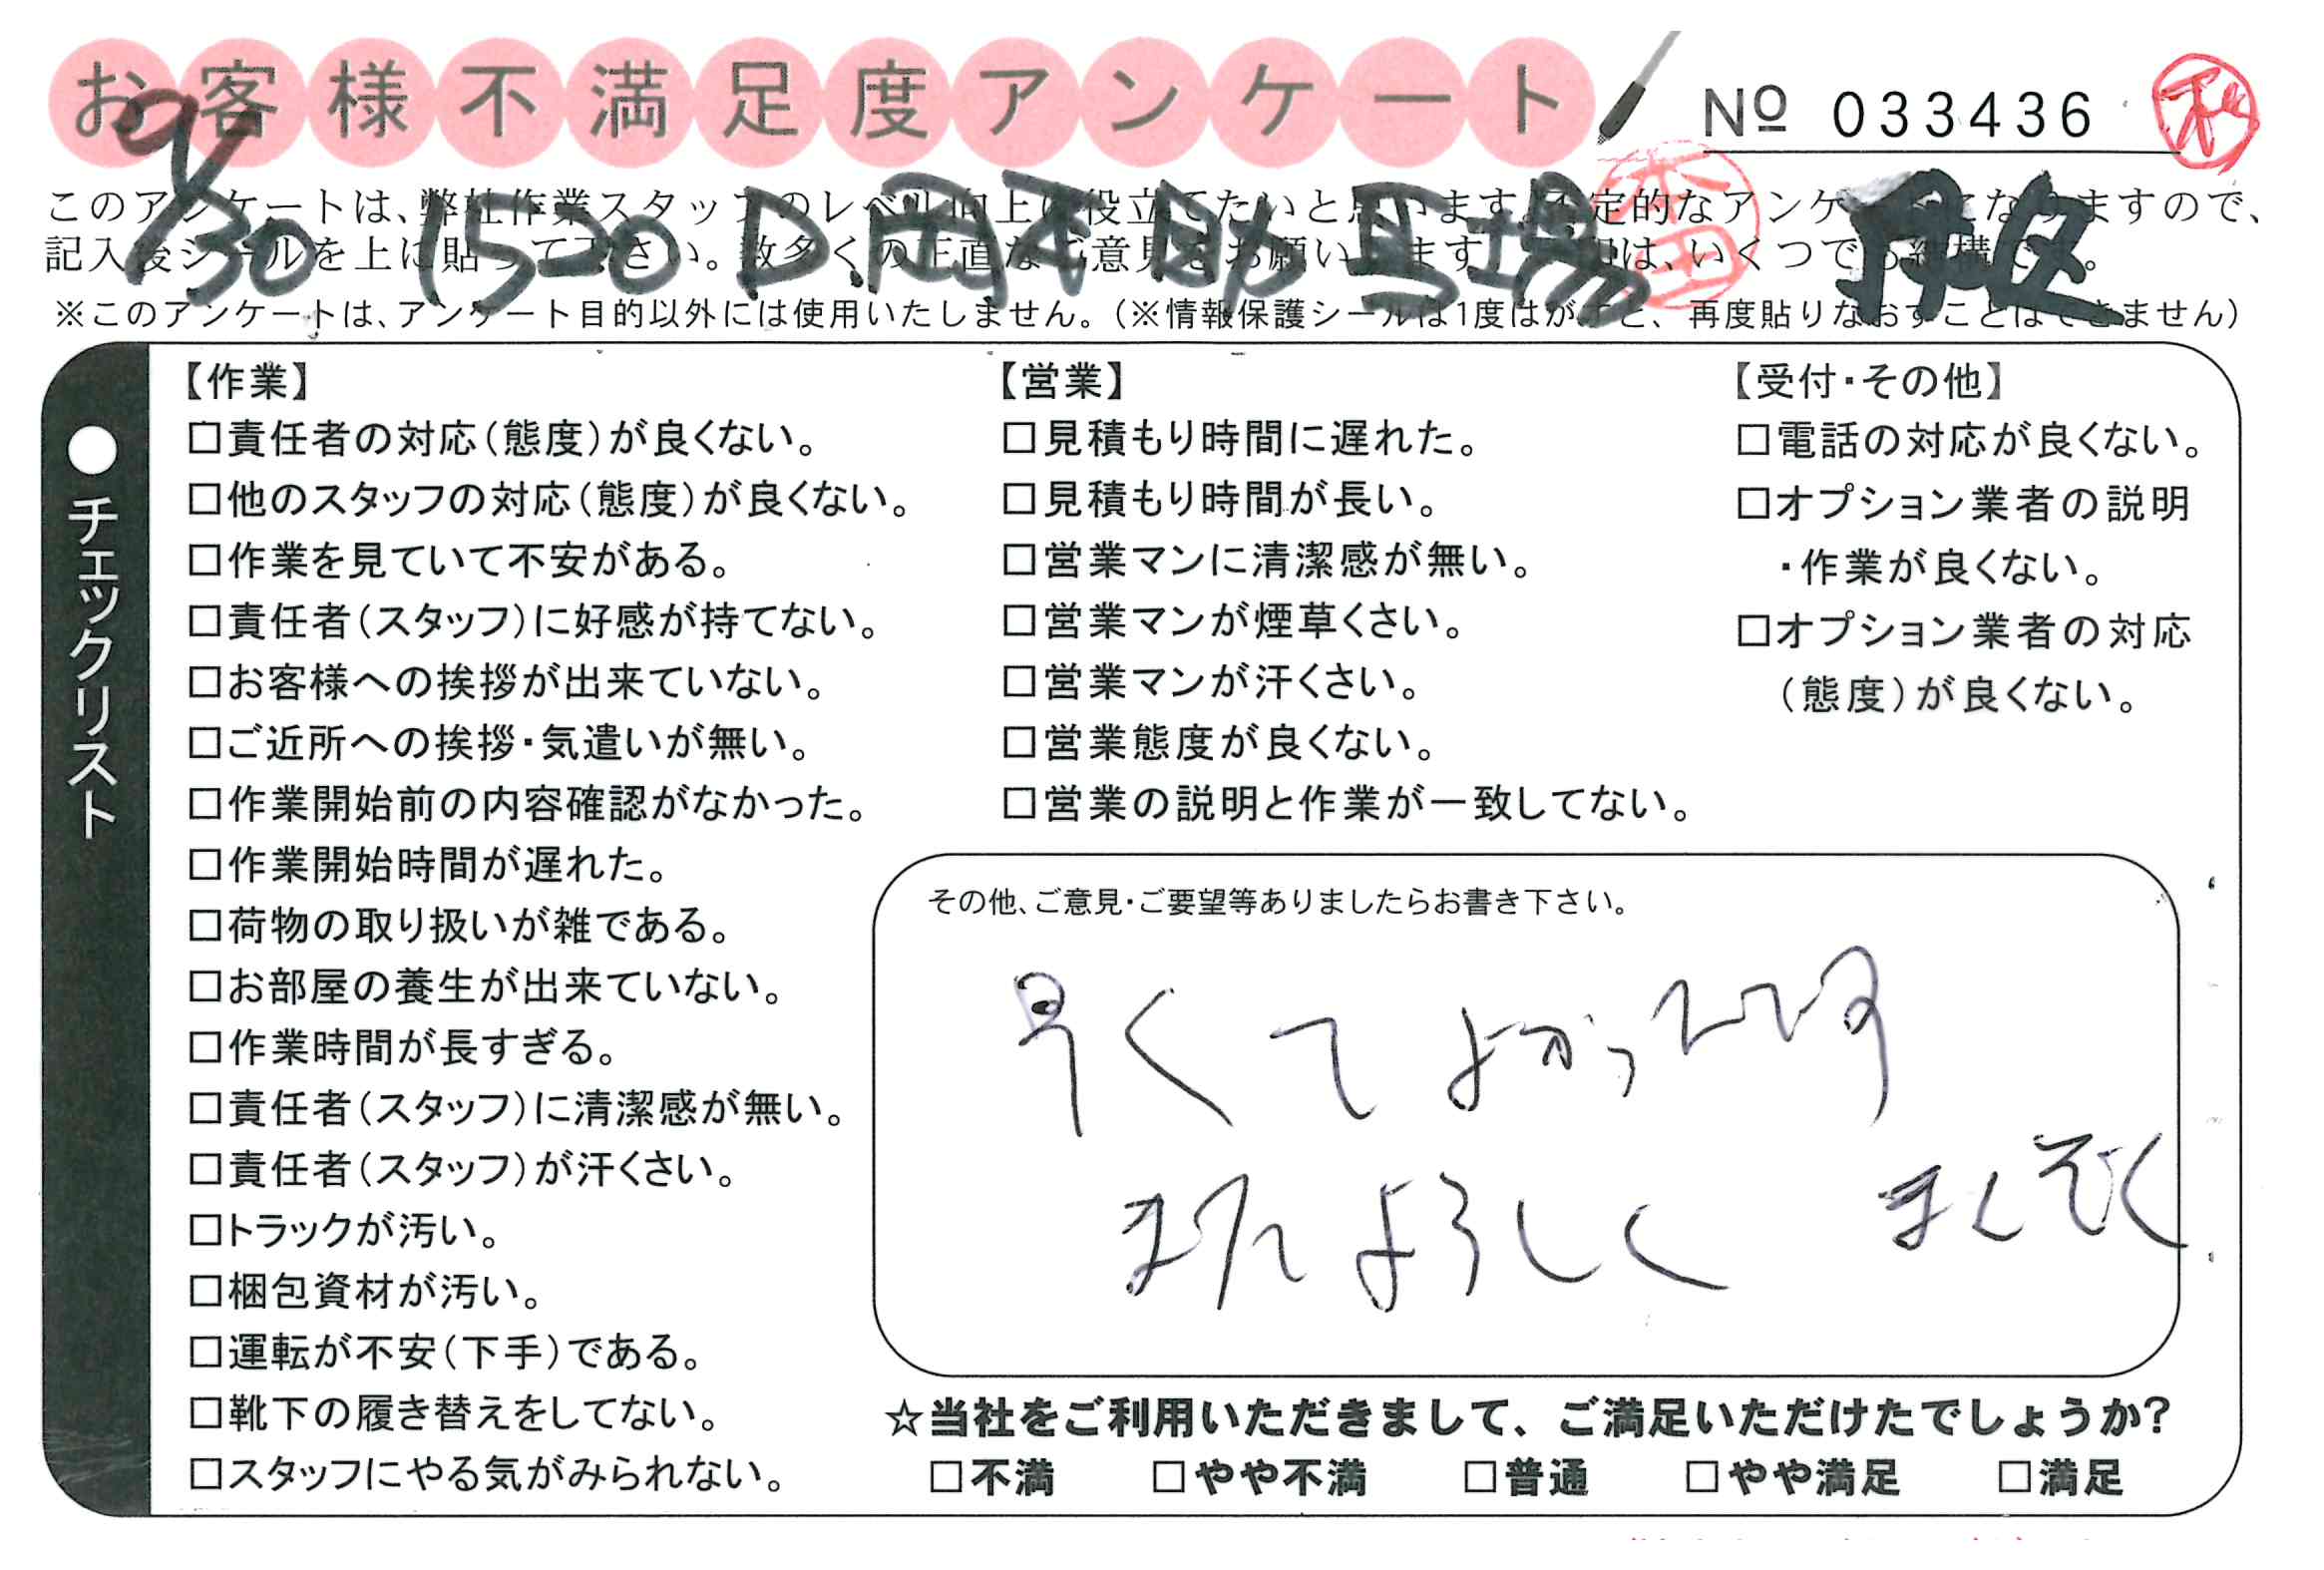 お客様不満足度アンケート
№ 033436
9/30 1520 D.岡本 助 馬場
本田
このアンケートは、弊社作業スタッフのレベル向上に役立てたいと思います。否定的なアンケートになりますので、
記入後シールを上に貼って下さい。数多くの正直なご意見をお願いします。印は、いくつでも結構です。
※このアンケートは、アンケート目的以外には使用いたしません。(※情報保護シールは1度はがすと、再度貼りなおすことはできません)
●チェックリスト
【作業】
□責任者の対応(態度)が良くない。
□他のスタッフの対応(態度)が良くない。
□作業を見ていて不安がある。
□責任者(スタッフ)に好感が持てない。
□お客様への挨拶が出来ていない。
□ご近所への挨拶・気遣いが無い。
□作業開始前の内容確認がなかった。
□作業開始時間が遅れた。
□荷物の取り扱いが雑である。
□お部屋の養生が出来ていない。
□作業時間が長すぎる。
□責任者(スタッフ)に清潔感が無い。
□責任者(スタッフ)が汗くさい。
□トラックが汚い。
□梱包資材が汚い。
□運転が不安(下手)である。
□靴下の履き替えをしてない。
□スタッフにやる気がみられない。
【営業】
□見積もり時間に遅れた。
□見積もり時間が長い。
□営業マンに清潔感が無い。
□営業マンが煙草くさい。
□営業マンが汗くさい。
□営業態度が良くない。
□営業の説明と作業が一致してない。
【受付・その他】
□電話の対応が良くない。
□オプション業者の説明
・作業が良くない。
□オプション業者の対応
(態度)が良くない。
その他、ご意見・ご要望等ありましたらお書き下さい。
早くてよかったです
またよろしく まんぞく
☆当社をご利用いただきまして、ご満足いただけたでしょうか?
□不満 □やや不満 □普通 □やや満足 □満足